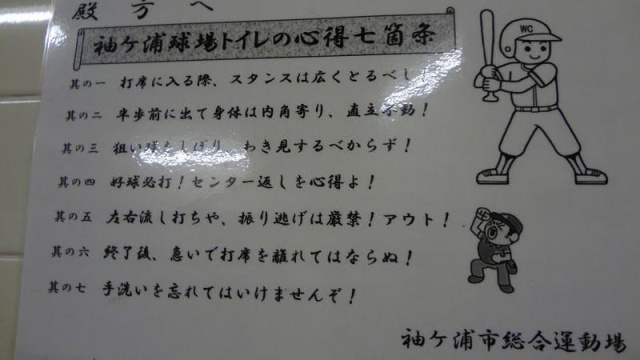 殿方へ
袖ケ浦球場トイレの心得七箇条
WC
其の一 打席に入る際、スタンスは広くとるべし
其の二 半歩前に出て身体は内角寄り、直立不動！
其の三 狙い球をしぼり、わき見するべからず！
其の四 好球必打！センター返しを心得よ！
其の五 左右流し打ちや、振り逃げは厳禁！アウト！
其の六 終了後、急いで打席を離れてはならぬ！
其の七 手洗いを忘れてはいけませんぞ！
袖ケ浦市総合運動場